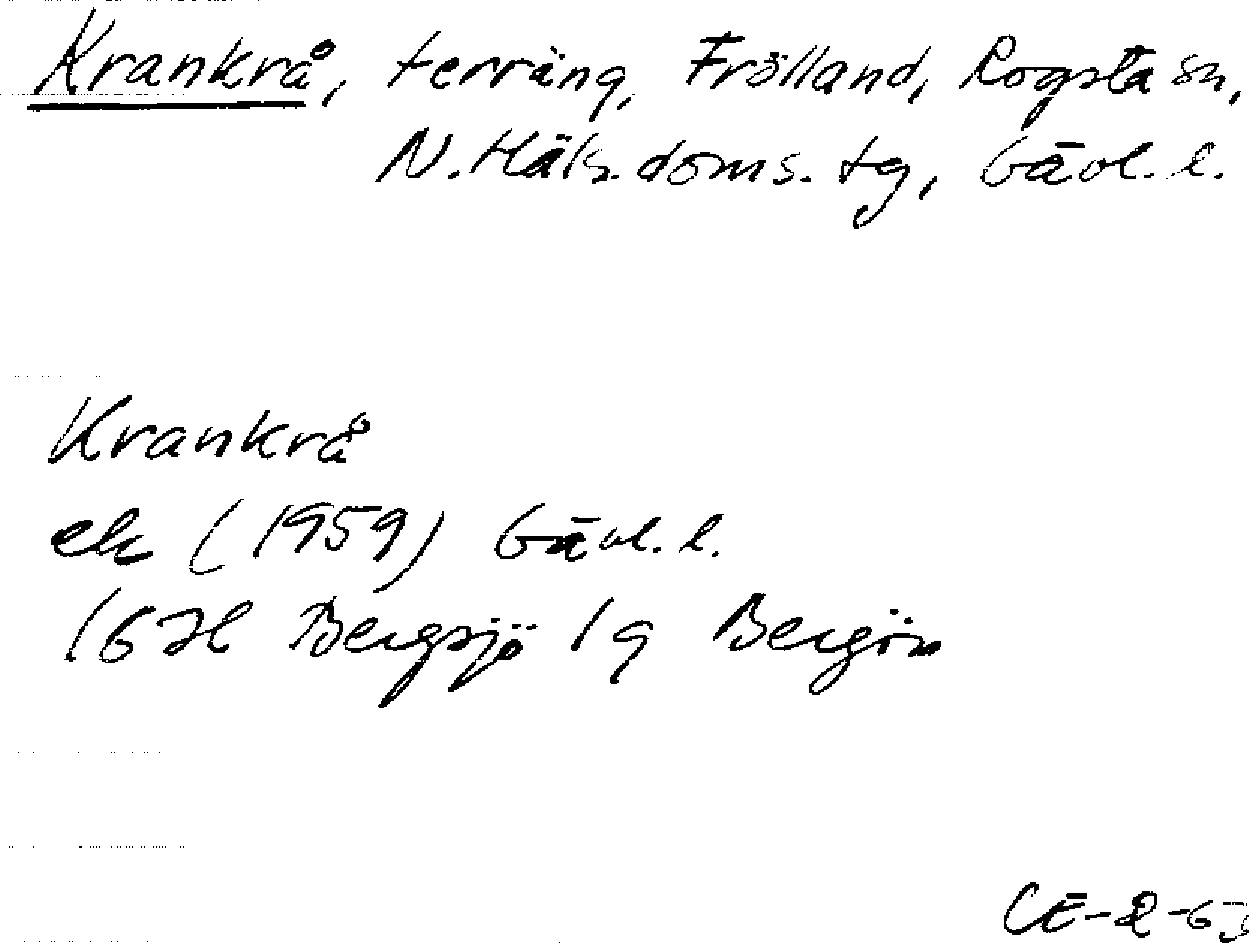 Krankrå, terräng, Frölland, Rogsta sn,
N. Häls. doms. tg, Gävl. l.
Krankrå
ek (1959) Gävl. l.
16 H Bergsjö 1 g Bergön
CE-R-6